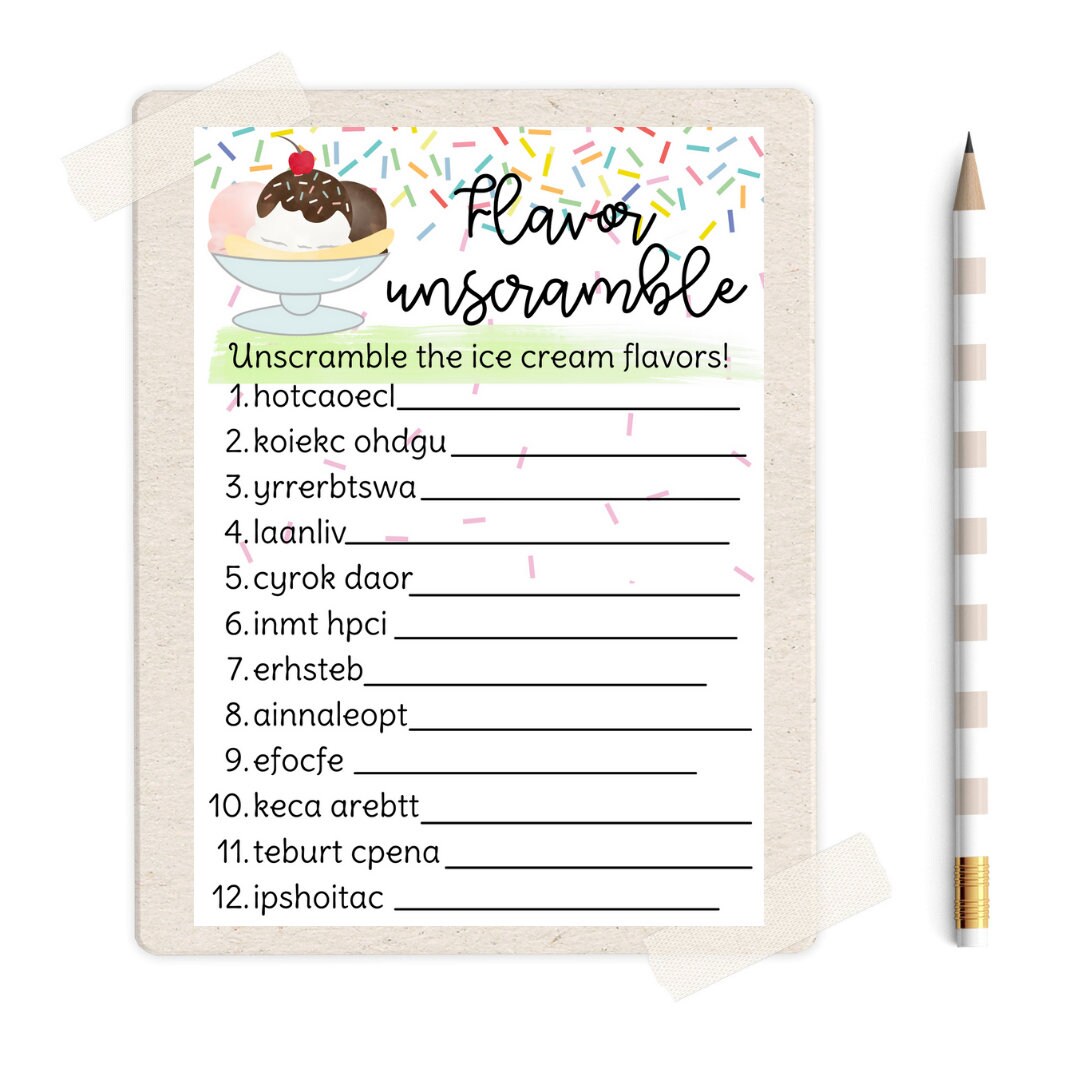 Flavor
unscramble
Unscramble the ice cream flavors!
1. hotcaoecl
2. koiekc ohdgu
3. yrrerbtswa
4. laanliv
5. cyrok daor
6. inmt hpci
7. erhsteb
8. ainnaleopt
9. efocfe
10. keca arebtt
11. teburt cpena
12. ipshoitac